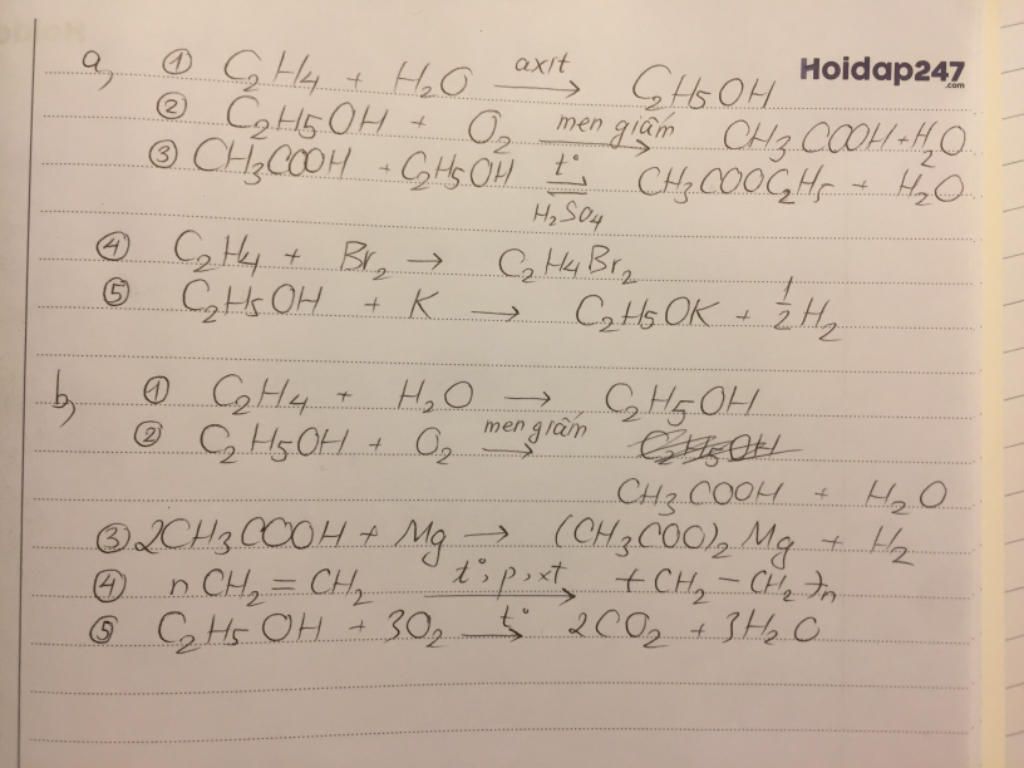 Hoidap247
.com
a, ① C₂H₄ + H₂O axit → C₂H₅OH
② C₂H₅OH + O₂ men giấm → CH₃COOH + H₂O
③ CH₃COOH + C₂H₅OH t° ⇌ H₂SO₄ CH₃COOC₂H₅ + H₂O
④ C₂H₄ + Br₂ → C₂H₄Br₂
⑤ C₂H₅OH + K → C₂H₅OK + 1/2 H₂
b, ① C₂H₄ + H₂O → C₂H₅OH
② C₂H₅OH + O₂ men giấm → C₂H₅OH
CH₃COOH + H₂O
③ 2CH₃COOH + Mg → (CH₃COO)₂Mg + H₂
④ nCH₂ = CH₂ t°, p, xt → (CH₂ – CH₂)n
⑤ C₂H₅OH + 3O₂ t° → 2CO₂ + 3H₂O